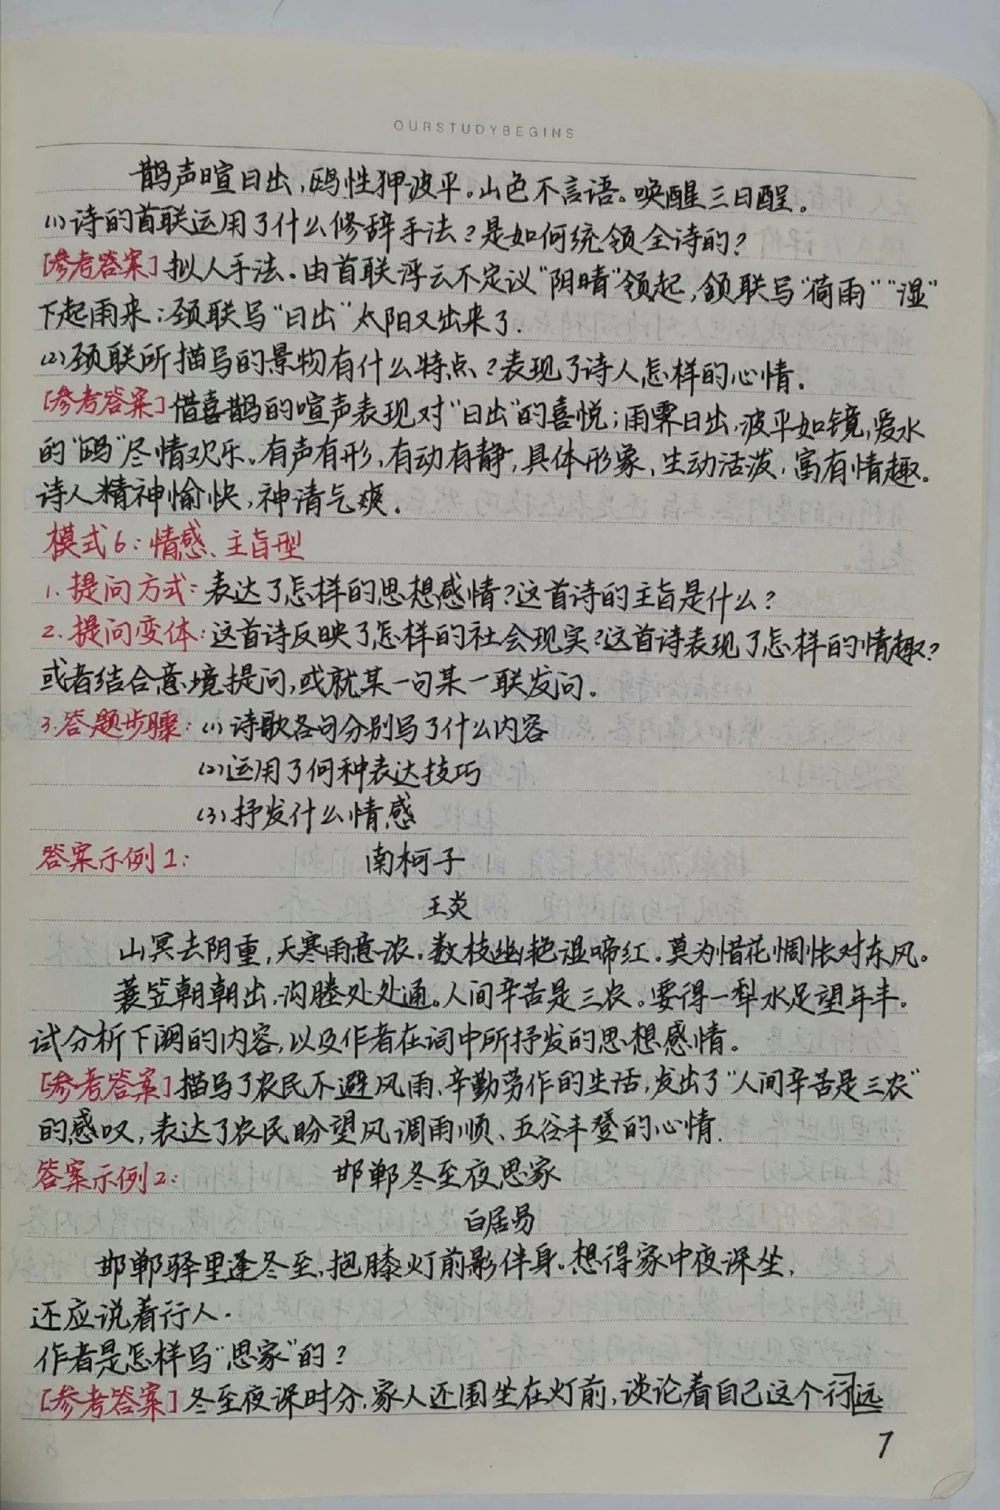 OURSTUDYBEGINS
鹊声喧日出，鸥性狎波平。山色不言语。唤醒三日酲。
(1)诗的首联运用了什么修辞手法？是如何统领全诗的？
[参考答案]拟人手法。由首联浮云不定议“阴晴”领起，颔联写“荷雨”“湿”
下起雨来；颈联写“日出”太阳又出来了.
(2)颈联所描写的景物有什么特点？表现了诗人怎样的心情。
[参考答案]借喜鹊的喧声表现对“日出”的喜悦；雨霁日出，波平如镜，爱水
的“鸥”尽情欢乐。有声有形，有动有静，具体形象、生动活泼，富有情趣。
诗人精神愉快，神清气爽。
模式6：情感、主旨型
1.提问方式：表达了怎样的思想感情？这首诗的主旨是什么？
2.提问变体：这首诗反映了怎样的社会现实？这首诗表现了怎样的情趣？
或者结合意境提问，或就某一句某一联发问。
3.答题步骤：(1)诗歌各句分别写了什么内容
(2)运用了何种表达技巧
(3)抒发什么情感
答案示例1：南柯子
王炎
山冥去阴重，天寒雨意浓。数枝幽艳湿啼红。莫为惜花惆怅对东风。
蓑笠朝朝出，沟塍处处通。人间辛苦是三农。要得一犁水足望年丰。
试分析下阕的内容，以及作者在词中所抒发的思想感情。
[参考答案]描写了农民不避风雨、辛勤劳作的生活，发出了“人间辛苦是三农”
的感叹，表达了农民盼望风调雨顺、五谷丰登的心情.
答案示例2：邯郸冬至夜思家
白居易
邯郸驿里逢冬至，抱膝灯前影伴身。想得家中夜深坐，
还应说着行人.
作者是怎样写“思家”的？
[参考答案]冬至夜深时分，家人还围坐在灯前，谈论着自己这个行远
7